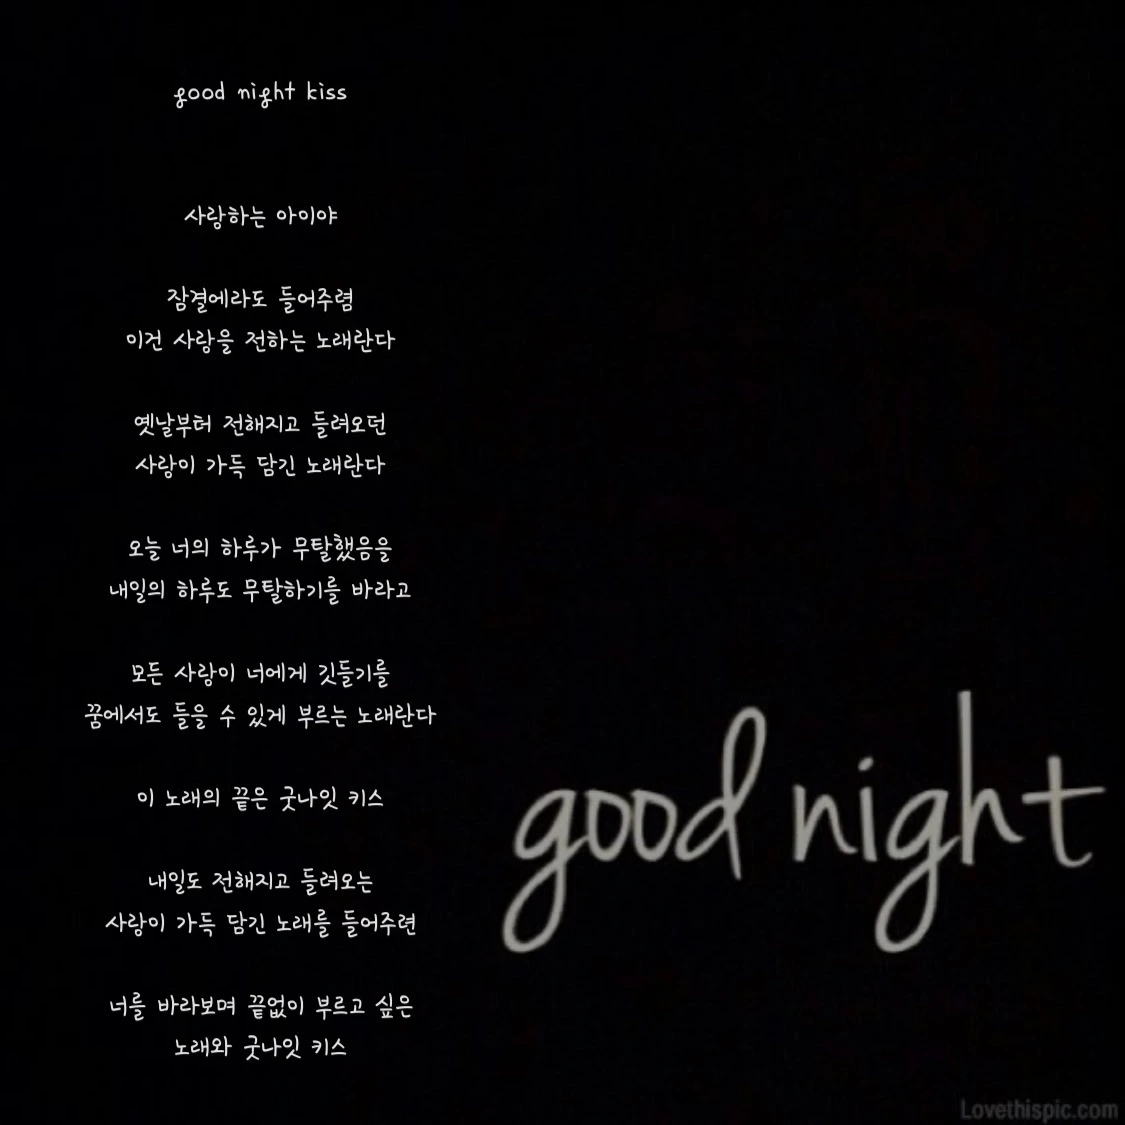 good night kiss
사랑하는 아이야
잠결에라도 들어주렴
이건 사랑을 전하는 노래란다
옛날부터 전해지고 들려오던
사랑이 가득 담긴 노래란다
오늘 너의 하루가 무탈했음을
내일의 하루도 무탈하기를 바라고
모든 사랑이 너에게 깃들기를
꿈에서도 들을 수 있게 부르는 노래란다
이 노래의 끝은 굿나잇 키스
내일도 전해지고 들려오는
사랑이 가득 담긴 노래를 들어주련
너를 바라보며 끝없이 부르고 싶은
노래와 굿나잇 키스
good night
Lovethispic.com